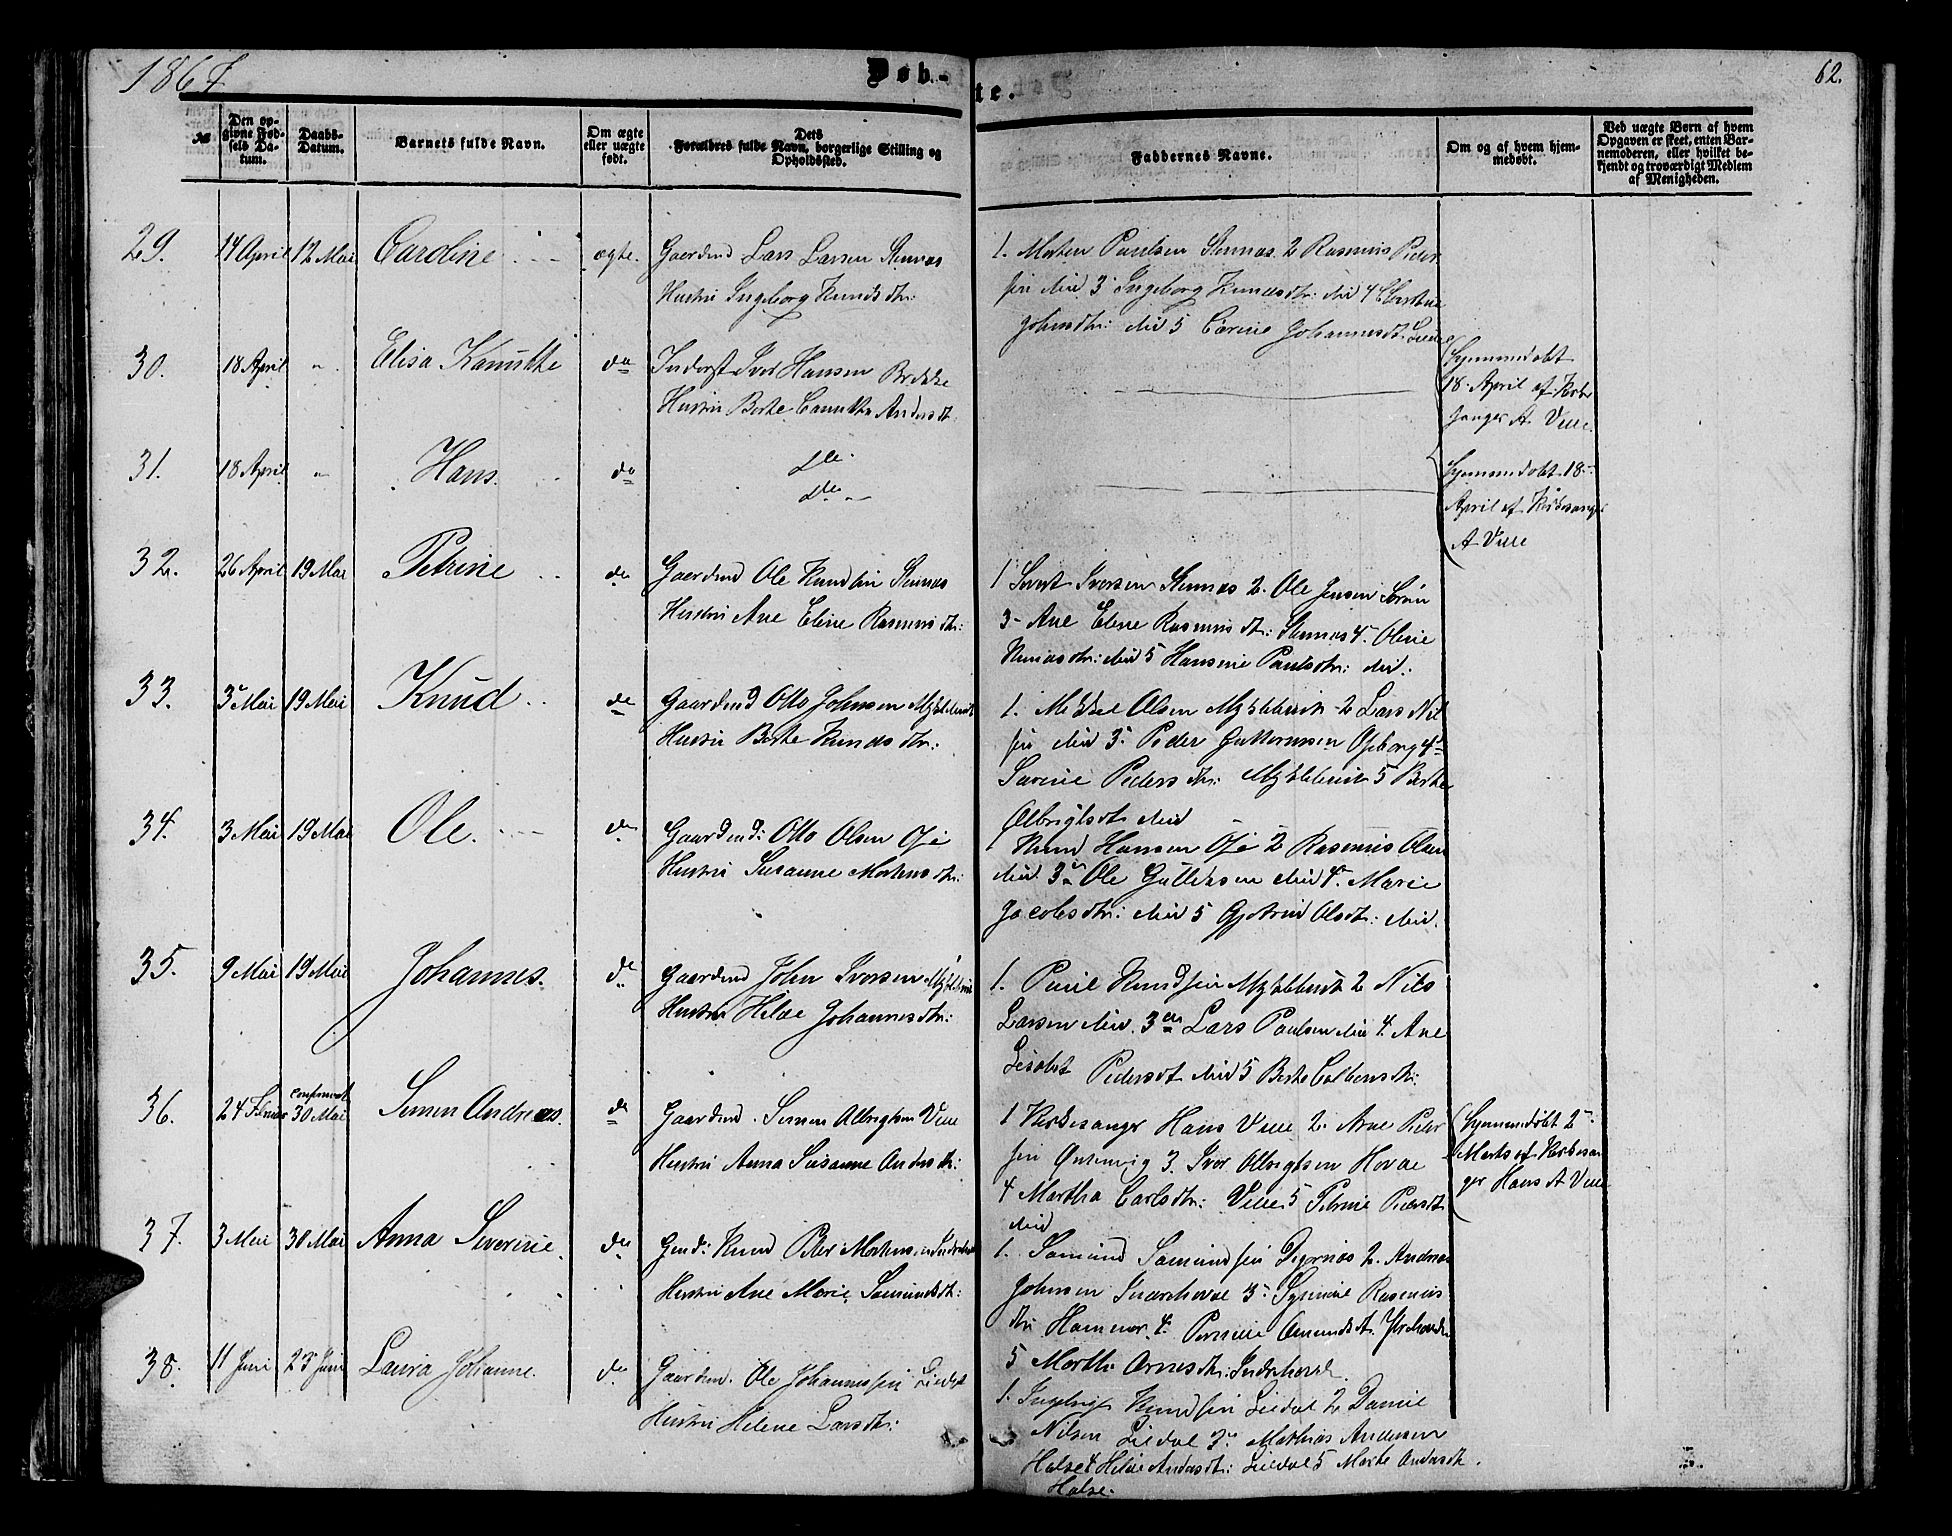 1867
Døb-
te.
62.
№
Den op-
givne Fød-
sels Da-
tum.
Daabs-
Datum.
Barnets fulde Navn.
Om ægte
eller uægte
født.
Dets
Forældres fulde Navn, borgerlige Stilling og
Opholdssted.
Faddernes Navne.
Om og af hvem hjem-
medøbt.
Ved uægte Børn af hvem
Opgaven er skeet, enten Bar-
nemoderen, eller hvilket be-
kjendt og troværdigt Medlem
af Menigheden.
29. 14 April 12 Mai Caroline ægte. Gaardmd Lars Larsen Stennes
Hustru Ingeborg Knudsdtr:
1. Morten Paulsen Stennes. 2 Rasmus Peder
sen ibid 3 Ingeborg Knudsdtr: ibid 4
Johnsdtr: ibid 5 Carine Johannesdt
30. 18 April " Elisa Kanutthe do Inderst Ivor Hansen Brekke
Hustru Berthe Canutha Andersdt.
Hjemmedøbt
18 April af Kirke
sanger A Velle.
31. 18 April " Hans. do dto
dto
Hjemmedøbt 18
April af Kirkesanger
A Velle
32. 26 April 19 Mai Petrine do Gaardmd Ole Knudsen Stennes
Hustru Ane Eline Rasmusdtr:
1 Sivert Iversen Stennes 2. Ole Jensen
3 Ane Eline Rasmusdtr: Stennes 4. Oline
Knudsdtr: ibid 5 Hansine Paulsdtr: ibid.
33. 3 Mai 19 Mai Knud do Gaardmd Otto Johnsen Myklebust
Hustru Berthe Knudsdtr:
1. Mikkel Olsen Myklebust 2 Lars Nil
sen ibid 3 Peder Guttormsen Opborg 4
Severine Pedersdtr: Myklebust 5 Berthe
Albrigtsdt ibid
34. 3 Mai 19 Mai Ole. do Gaardmd: Otto Olsen Øie
Hustru Susanne Mortensdtr:
1 Knud Hansen Øie 2 Rasmus Olsen
ibid 3 Ole Gulliksen ibid 4. Marie
Jacobsdtr: ibid 5 Gjertrud Olsdt: ibid.
35. 9 Mai 19 Mai Johannes. do Gaardmd John Iversen Myklebust
Hustru Hilde Johannesdtr:
1. Paul Knudsen Myklebust 2 Nils
Larsen ibid. 3 Lars Paulsen ibid 4. Ane
Lisabet Pedersdt ibid 5 Berthe Colbensdtr:
36. 24 Februar confirmeret
30 Mai Simen Andreas. do Gaardmd. Simen Albrigtsen Velle
Hustru Anna Susanne Andersdtr:
1 Kirkesanger Hans Velle 2. Arne Peder
sen 3. Ivor Albrigtsen Hovde
4 Martha Carlsdtr: Velle 5 Petrine Pedersdt
ibid
Hjemmedøbt 2
Marts af Kirkesan
ger Hans A Velle
37. 3 Mai 30 Mai Anna Severine. do Gmd: Knud Peter Mortensen Indrehovde
Hustru Ane Marie Samundsdt:
1. Samund Samundsen Dyrnes 2. Andreas
Johnsen Indrehovde 3 Rasmus
dtr Hammer. 4. Pernille Amundsdt. Ytrehovde
5 Marthe Arnesdtr: Indrehovde.
38. 11 Juni 23 Juni Laura Johanne. do Gaardmd. Ole Johannessen Liedal
Hustru Helene Larsdtr:
1. Ingebrigt Knudsen Liedal 2 Daniel
Nilsen Liedal 3. Mathias Andersen
Halse 4 Hilde Andersdtr: Liedal 5 Marte Andersdtr.
Halse.